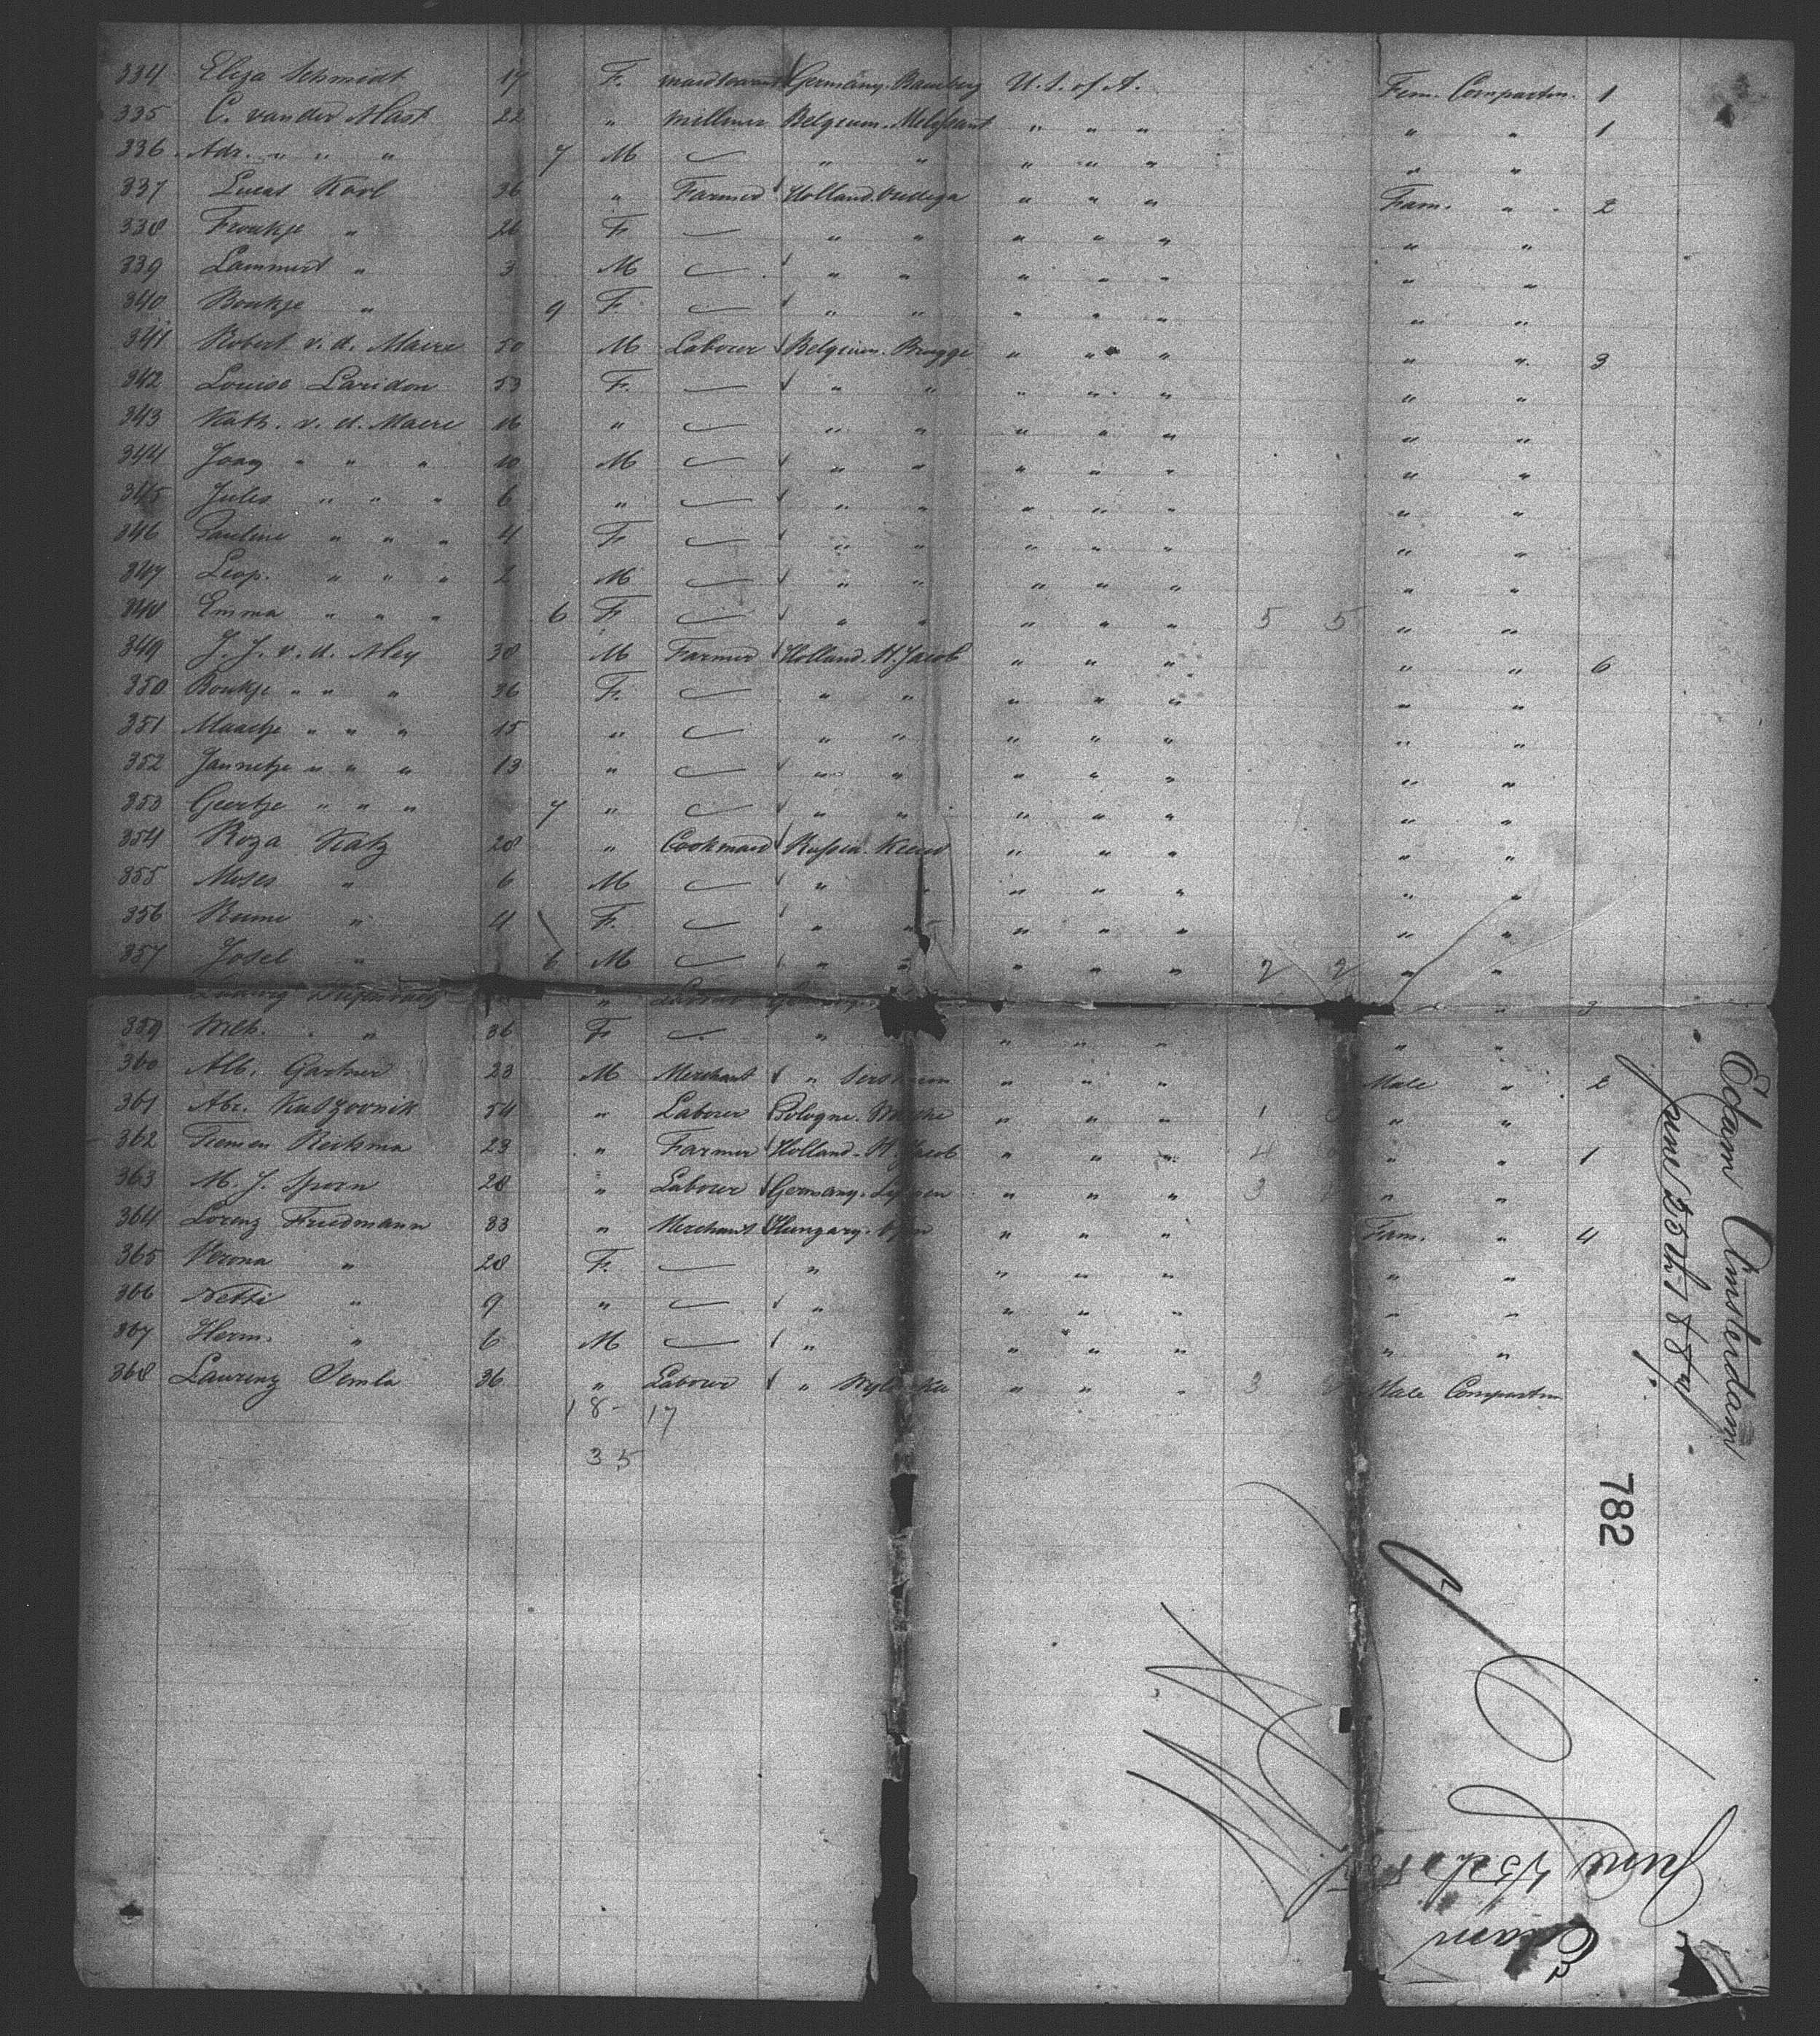 334 Eliza Schmidt 17 F. maidservant Germany. Bamberg U. S. of A. Fem. Compartm. 1
335 C. van der Mast 22 " milliner Belgium. " " " " " 1
336 Adr. " " " 7 M — " " " " " " "
337 Lucas Korl 36 " Farmer Holland. " " " Fam. " 2
338 Froukje " 26 F — " " " " " " "
339 Lammert " 3 M — " " " " " " "
340 Boukje " 9 F. — " " " " " " "
341 Robert v. d. Maere 50 M Labourer Belgium. Brugge " " " " " 3
342 Louise Laridon 53 F. — " " " " " " "
343 Kath. v. d. Maere 16 " — " " " " " " "
344 " " " 10 M — " " " " " " "
345 Jules " " " 6 " — " " " " " " "
346 Pauline " " " 4 F — " " " " " " "
347 Leop. " " " 2 M — " " " " " " "
348 Emma " " " 6 F — " " " " " 5 5 " "
349 J. J. v. d. Mey 38 M Farmer Holland. St. Jacob " " " " " 6
350 Boukje " " " 36 F. — " " " " " " "
351 Maartje " " " 15 " — " " " " " " "
352 Jannetje " " " 13 " — " " " " " " "
353 Geertje " " " 7 " — " " " " " " "
354 Roza Katz 28 " Cookmaid Russia. Kiew " " " " "
355 Moses " 6 M — " " " " " " "
356 " 4 F. — " " " " " " "
357 Josel " 6 M — " " " " " 2 2 " "
Ludwig " Labourer " 3
359 Wilh. " 36 F — " " " " " "
360 Alb. Gartner 23 M Merchant " " " " Male " 2
361 Abr. 54 " Labourer Pologne. " " " 1 " "
362 Tiemen Reitsma 23 " Farmer Holland. St. Jacob " " " 4 " " 1
363 M. J. Spoen 28 " Labourer Germany. " " " 3 " "
364 Lorenz Friedmann 33 " Merchant Hungary. " " " Fam. " 4
365 Verona " 28 F. — " " " " " "
366 Netti " 9 " — " " " " " "
367 Herm. " 6 M — " " " " " "
368 Laurenz Semla 36 " Labourer " " " " 3 Male Compartm
18 - 17
35
Edam Amsterdam
June 25th 1887
782
June 25th
Edam